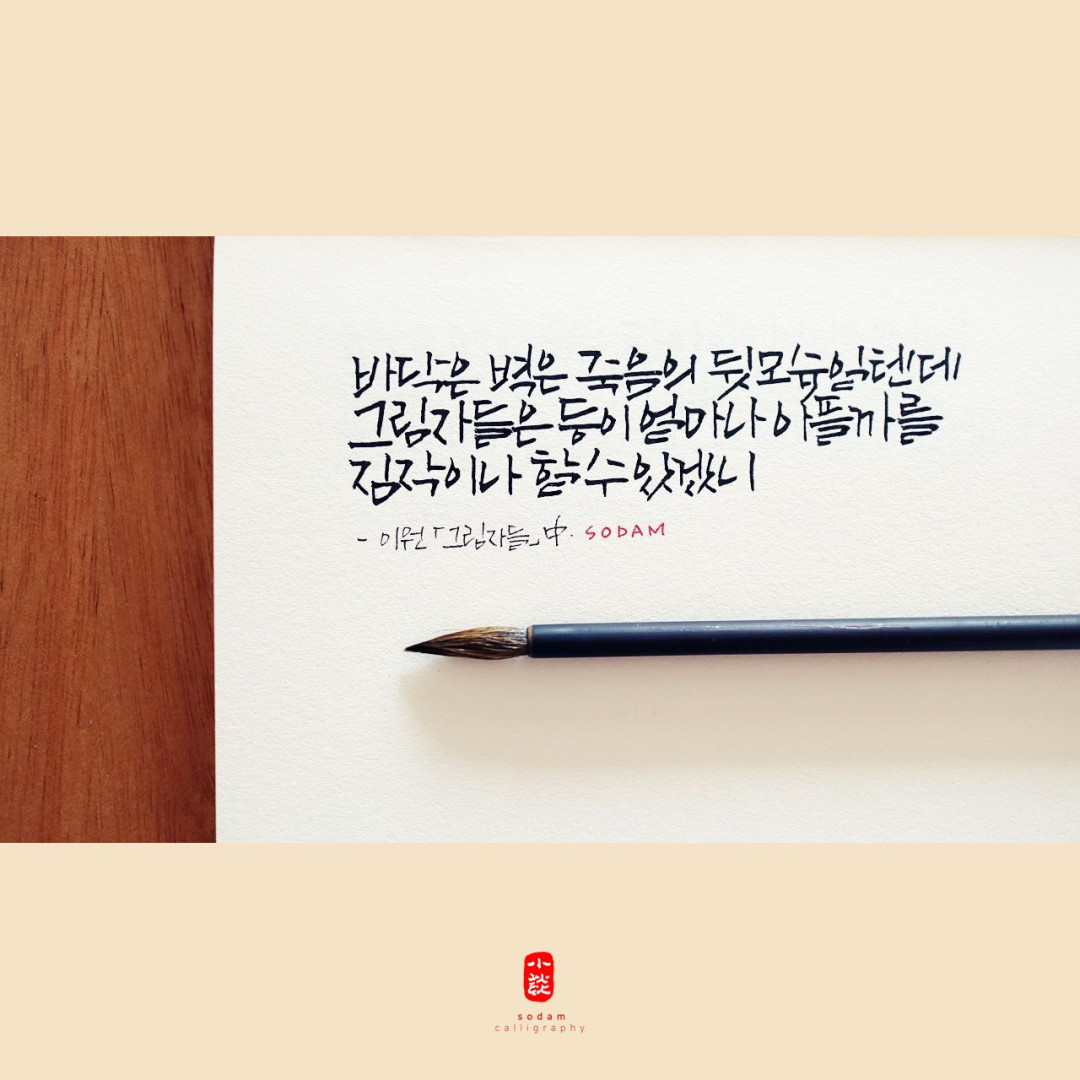 바닥은 벽은 죽음의 뒷모습일텐데
그림자들은 등이 얼마나 아플까를
짐작이나 할 수 있겠니
- 이원 「그림자들」 中. SODAM
小談
sodam
calligraphy